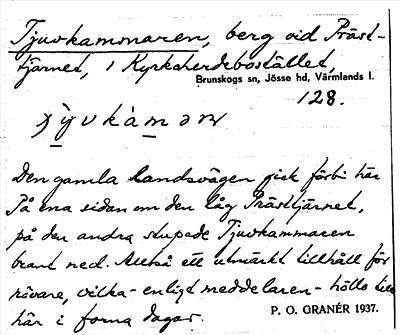 Tjuvkammaren, berg vid Präst-
tjärnet, i Kyrkoherdebostället,
Brunskogs sn, Jösse hd, Värmlands l.
128.
Den gamla landsvägen gick förbi här
På ena sidan om den låg Prästtjärnet,
på den andra stupade Tjuvkammaren
brant ned. Alltså ett utmärkt tillhåll för
rövare, vilka - enligt meddelaren - hölls till
här i forna dagar.
P. O. GRANÉR 1937.